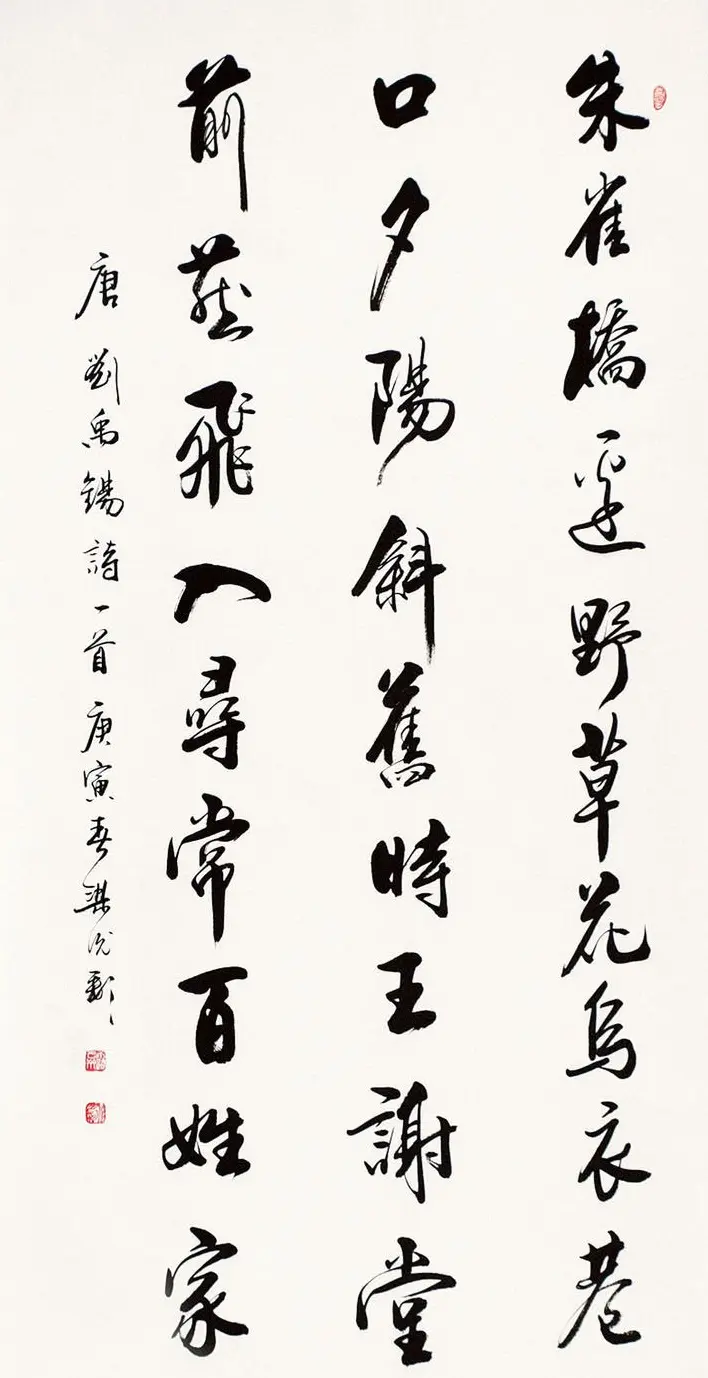 朱雀橋邊野草花烏衣巷
口夕陽斜舊時王謝堂
前燕飛入尋常百姓家
唐劉禹錫詩一首庚寅春